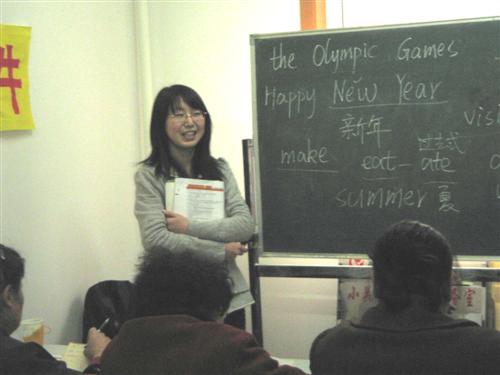 the Olympic Games
Happy New Year
新年 visi
make eat - ate 过去式
summer 夏
件
小